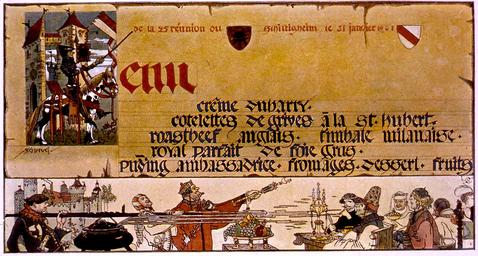 de la 25 réunion du Schiltigheim le 31 janvier
Menu
crême dubarry.
cotelettes de grives à la St. hubert.
roastbeef anglais. timbale milanaise.
royal parfait de foie gras.
puding ambassadrice. fromages. dessert. fruits